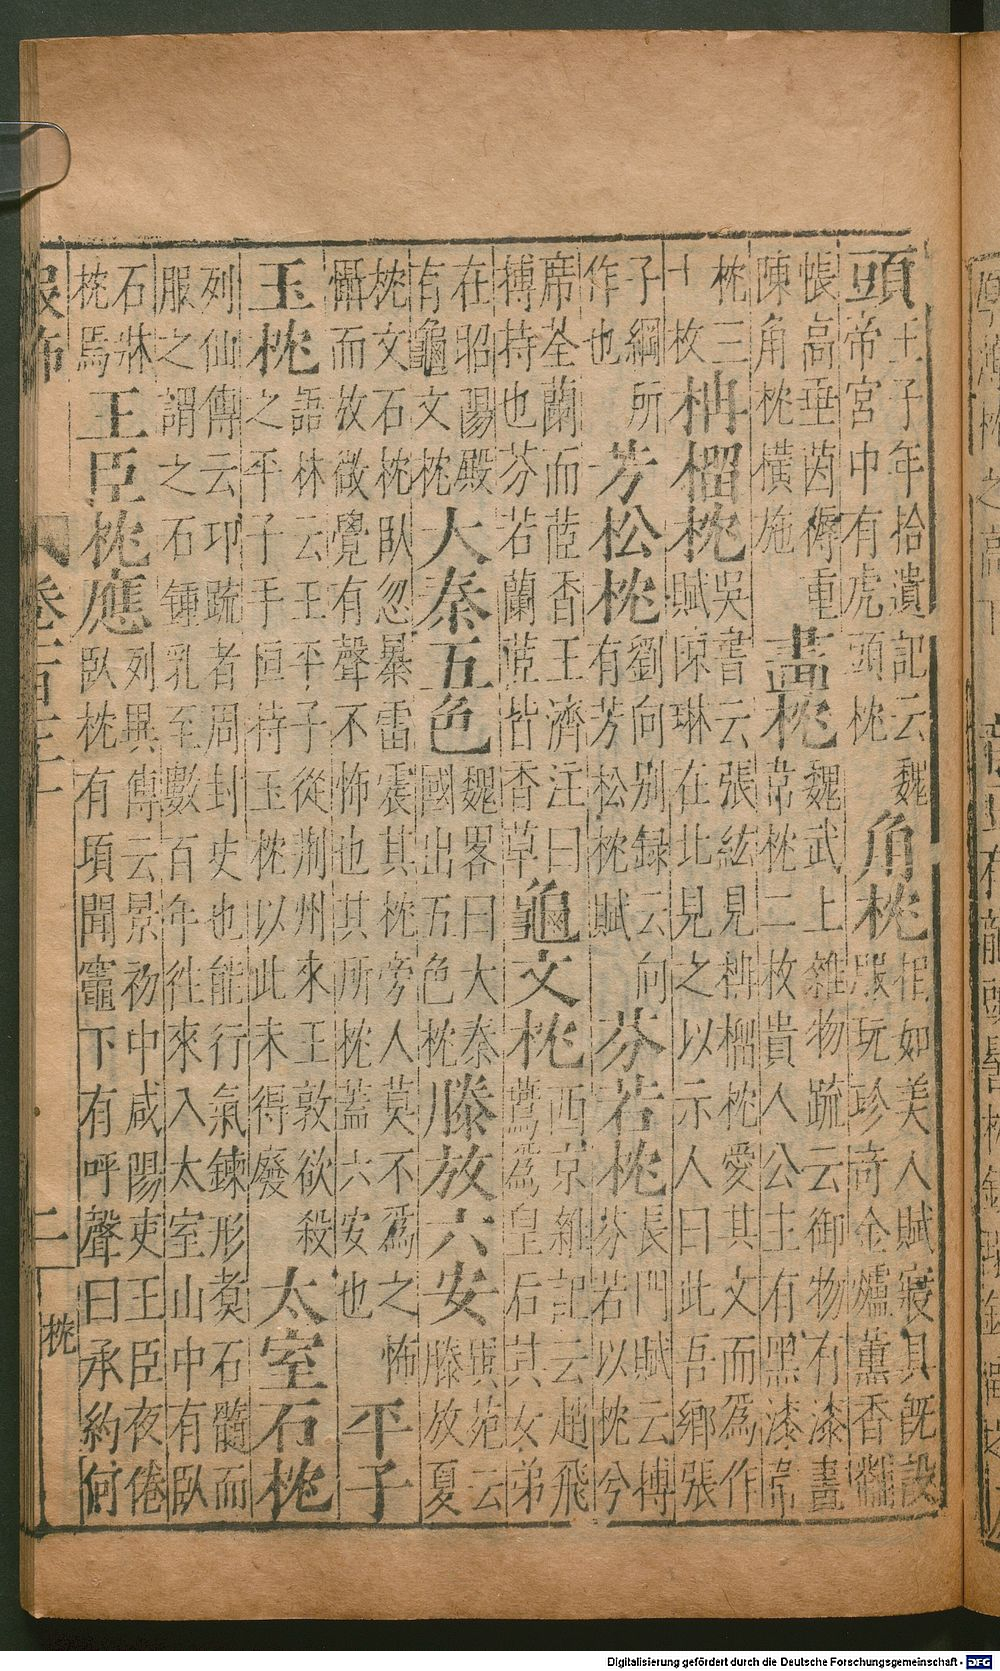 頭王子年拾遺記云魏帝宮中有虎頭枕角枕相如美人賦寢具旣設服玩珍奇金爐薰香黼
帳高垂茵褥重陳角枕橫施畫枕魏武上雜物疏云御物有漆畫韋枕二枚貴人公主有黑漆韋
枕三十枚柟榴枕吳書云張紘見柟榴枕愛其文而爲作賦陳琳在北見之以示人曰此吾鄉張
子綱所作也芳松枕劉向別録云向有芳松枕賦芬若枕長門賦云搏芬若以枕兮
席荃蘭而茝香王濟注曰搏持也芬若蘭茝皆香草龜文枕西京雜記云趙飛鷰爲皇后其女弟
在昭陽殿有龜文枕大秦五色魏畧曰大秦國出五色枕滕放六安異苑云滕放夏
枕文石枕臥忽暴雷震其枕旁人莫不爲之怖懾而放微覺有聲不怖也其所枕蓋六安也平子
玉枕語林云王平子從荆州來王敦欲殺之平子手恒持玉枕以此未得廢太室石枕
列仙傳云卭疏者周封史也能行氣鍊形煑石髓而服之謂之石鍾乳至數百年徃來入太室山中有臥
石牀枕焉王臣枕應列異傳云景初中咸陽吏王臣夜倦臥枕有頃聞竈下有呼聲曰承約何
服飾 卷 二 枕
Digitalisierung gefördert durch die Deutsche Forschungsgemeinschaft - DFG